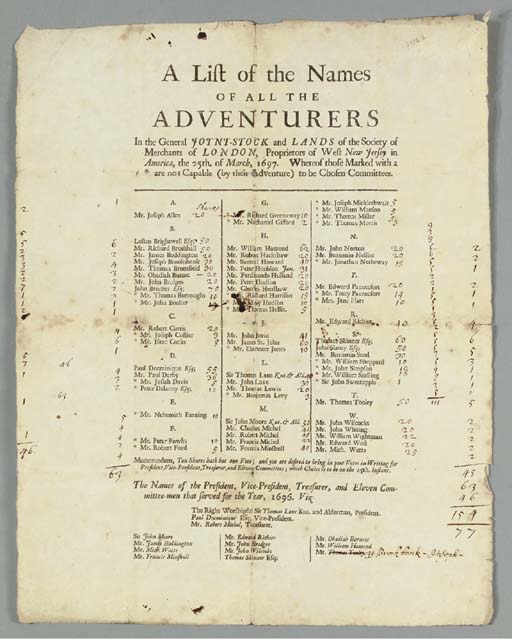 A Liſt of the Names
OF ALL THE
ADVENTURERS
In the General JOYNT-STOCK and LANDS of the Society of
Merchants of LONDON, Proprietors of Weſt New Jerſey in
America, the 25th. of March, 1697. Whereof thoſe Marked with a
* are not Capable (by their Adventure) to be Choſen Committees.
A.
Mr. Joſeph Allen 20
B.
Loftus Brightwell Eſq; 50
Mr. Richard Bromhall 50
Mr. James Boddington 26
Mr. Joſeph Brooksbank 30
Mr. Thomas Bromfield 30
Mr. Obadiah Burnet 20
Mr. John Bridges 20
* Mr. Thomas Burroughs 10
* Mr. John Booker
C.
Mr. Robert Curtis 20
* Mr. Joſeph Collier 3
* Mr. Iſaac Cocks 8
D.
Paul Docminique Eſq; 55
Mr. Paul Darby
* Mr. Joſiah Davis 5
* Mr. Peter Delanoy 10
E.
* Mr. Nehemiah Earning 10
F.
* Mr. Peter Fowlis 10
* Mr. Robert Foed 5
G.
Mr. Richard Greenaway 10
* Mr. Nathaniel Gifford 2
H.
Mr. William Hamond 62
Mr. Robert Hackſhaw 20
Mr. Samuel Howard 40
Mr. Peter Hoskins Jun. 31
Mr. Ferdinando Holland 20
Mr. Peter Hudſon 20
Mr. Charles Henſhaw 20
* Mr. Richard Harriſon 15
Hudſon 10
Mr. Thomas Hollis. 5
J.
Mr. John Jurin 41
Mr. James St. John 60
* Mr. Ebenezer Jones 10
L.
Sir Thomas Lane Knt. & Ald.
Mr. John Love 30
Mr. Thomas Lewis 20
* Mr. Benjamin Levy 3
M.
Sir John Moore Knt. & Ald. 50
Mr. Charles Michel
Mr. Robert Michel
Mr. Francis Michel 22
Mr. Francis Minſhull 40
* Mr. Joſeph Micklethwait 5
* Mr. William Manſon 5
* Mr. Thomas Miller
* Mr. Thomas Morris 3
N.
Mr. John Norton 20
Mr. Benjamin Nelſon 20
* Mr. Jonathan Netheway 15
P.
Mr. Edward Pauncefort 20
* Mr. Tracy Pauncefort 14
* Mrs. Jane Platt 10
R.
Mr. Edward Richier 40
S.
Thomas Skinner Eſq; 60
John Slaney Eſq; 50
Mr. Benjamin Steel 30
* Mr. William Sheppard 10
* Mr. John Simpſon 18
* Mr. William Snelling
* Sir John Sweetapple 1
T.
Mr. Thomas Tooley 50
W.
Mr. John Wilcocks 20
Mr. John Whiting 20
Mr. William Wightman 22
Mr. Edward Weſt 26
Mr. Mich. Watts 23
Memorandum, Ten Shares hath but one Vote; and you are deſired to bring in your Votes in Writing for
Preſident, Vice-Preſident, Treaſurer, and Eleven Committees; which Choice is to be on the 25th. Inſtant.
The Names of the Preſident, Vice-Preſident, Treaſurer, and Eleven Com-
mittee-men that ſerved for the Year, 1696. Viz.
The Right Worſhipful Sir Thomas Lane Knt. and Alderman, Preſident.
Paul Docminique Eſq; Vice-Preſident.
Mr. Robert Michel, Treaſurer.
Sir John Moore
Mr. James Boddington
Mr. Mich. Watts
Mr. Francis Minſhull
Mr. Edward Richier
Mr. John Bridges
Mr. John Wilcocks
Thomas Skinner Eſq;
Mr. Obadiah Burnet
Mr. William Hamond
Mr. Thomas Tooley
45
63
46
154
77